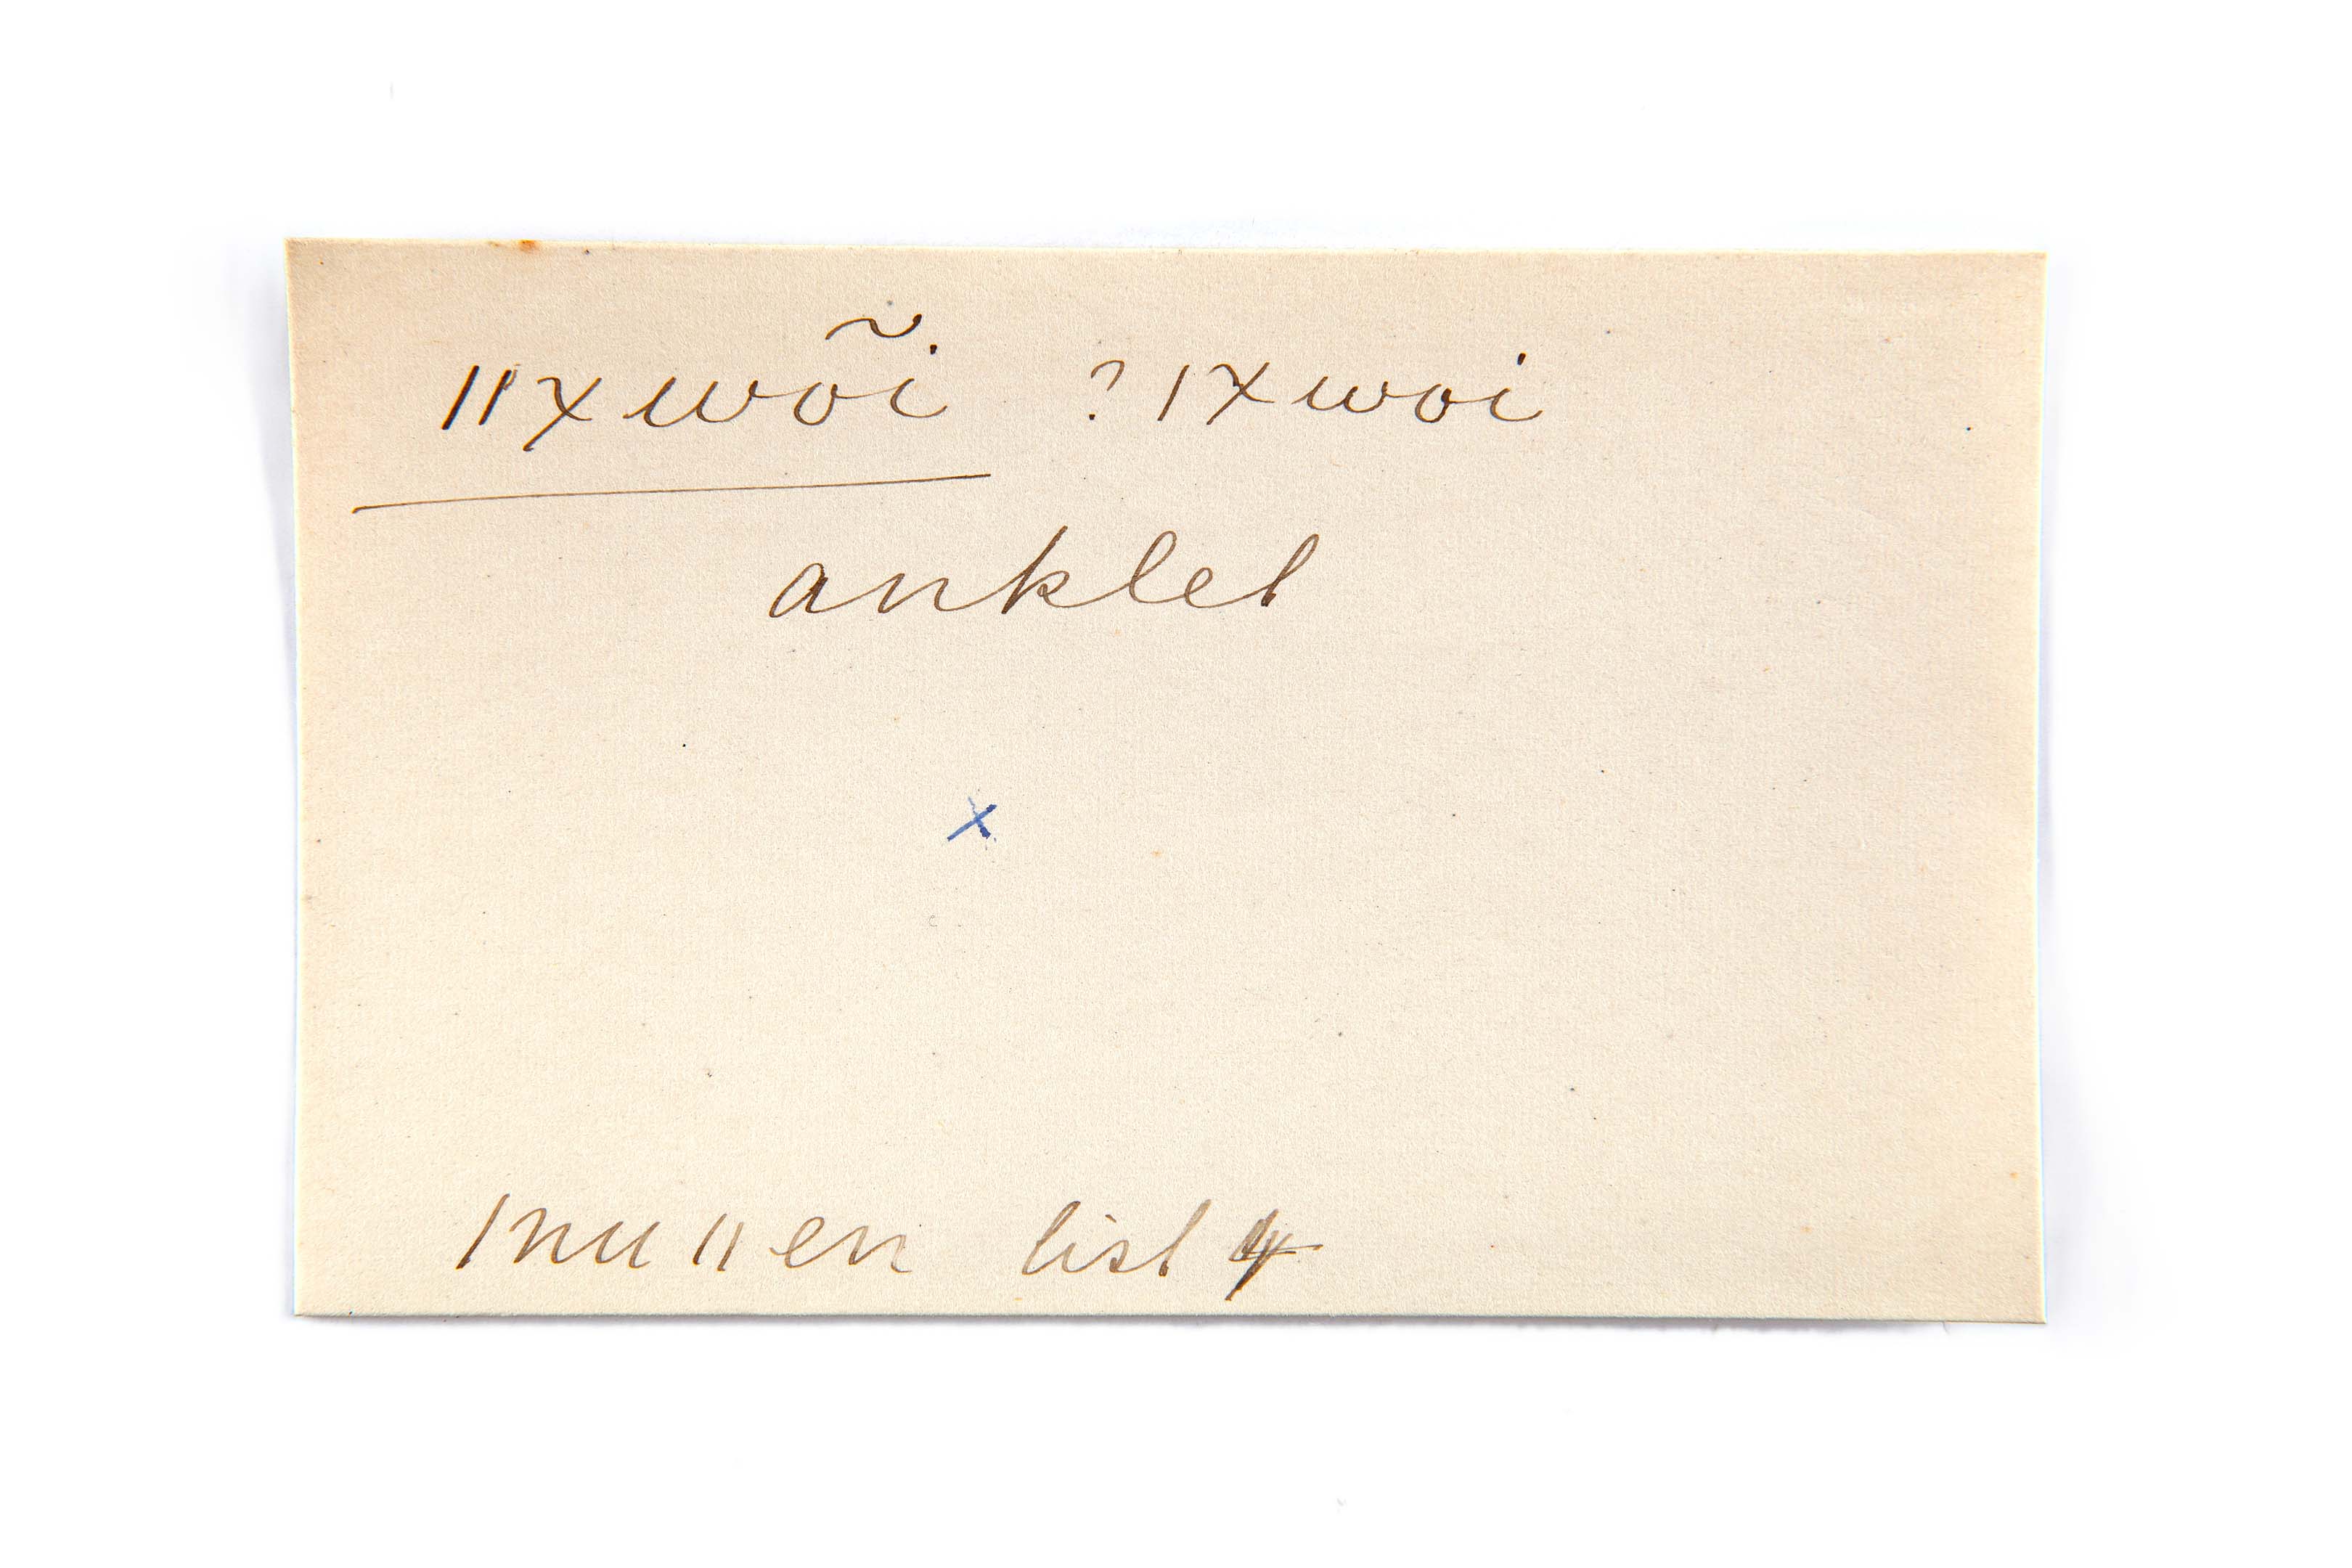 ǁχwõi ? ǀχwoi
anklet
x
ǀnuǁen list 4